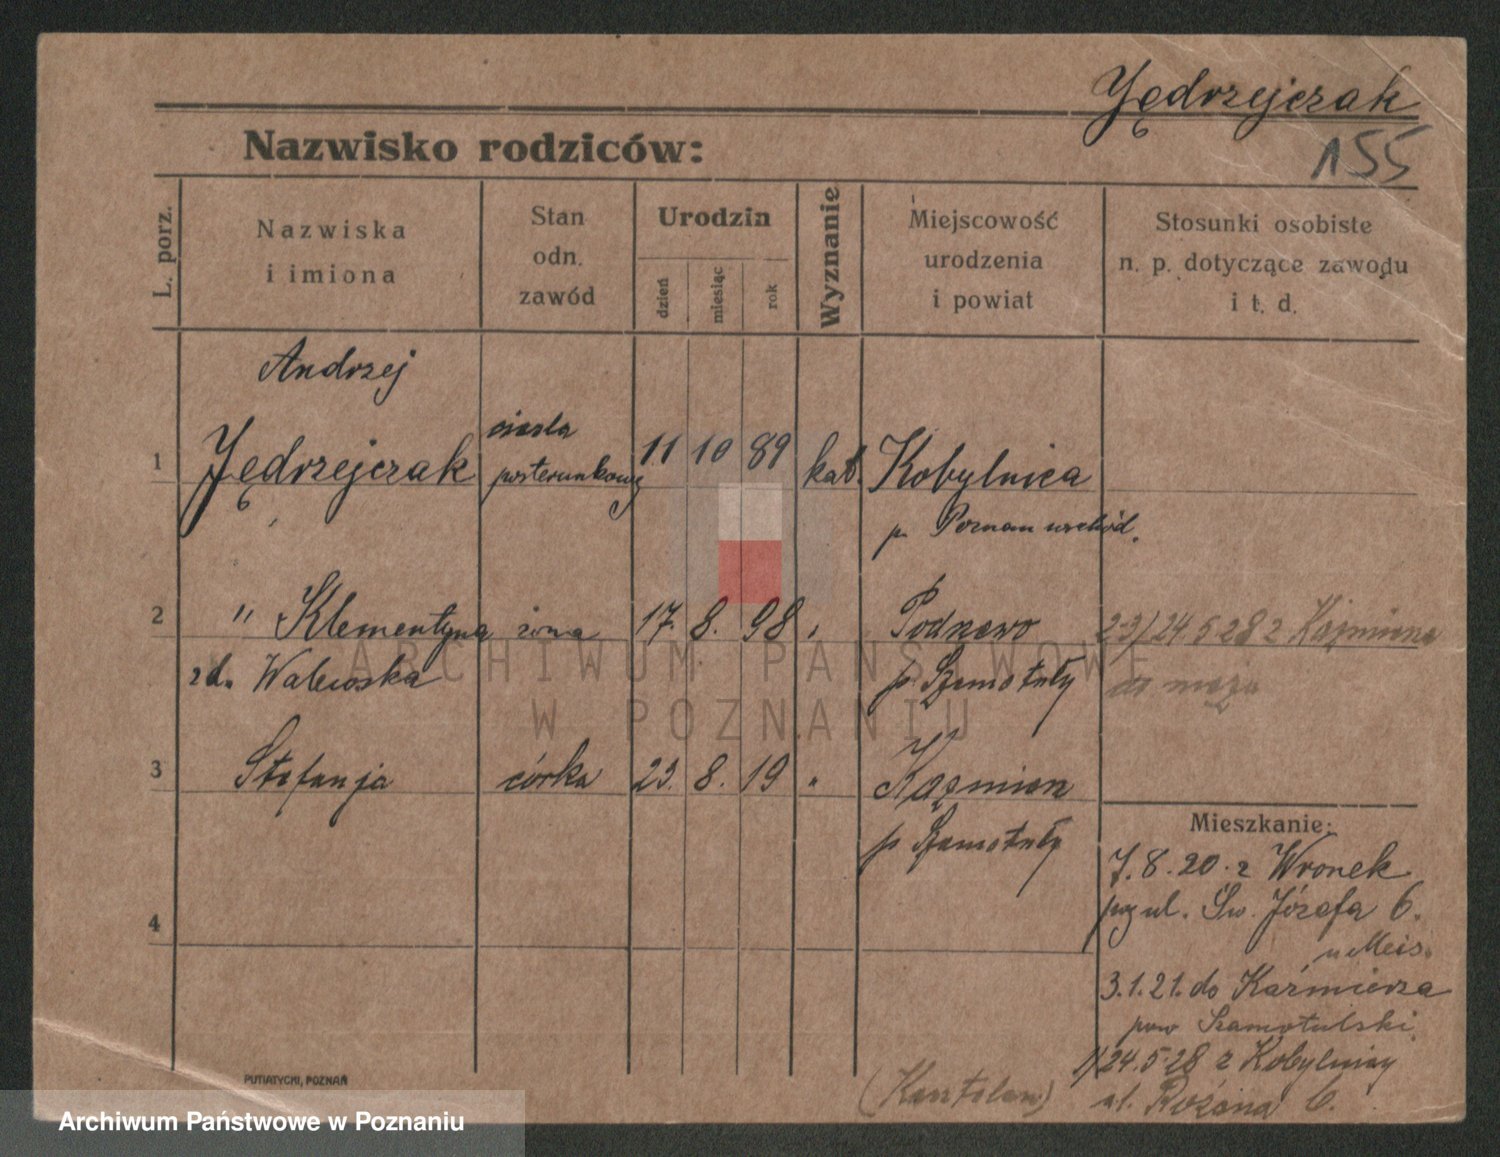 Jędrzejczak
Nazwisko rodziców:
155
L. porz.
Nazwiska
i imiona
Stan
odn.
zawód
Urodzin
dzień
miesiąc
rok
Wyznanie
Miejscowość
urodzenia
i powiat
Stosunki osobiste
n. p. dotyczące zawodu
i t. d.
Andrzej
1 Jędrzejczak
posterunkowy
11 10 89 kat. Kobylnica
p. Poznan wschód.
2 " Klementyna żona 17. 8. 98 "
23/24.5 28 z Kaźmierza
do męża
zd.
p. Szamotuły
3 Stefanja córka 23. 8. 19 " Kaźmierz
p Szamotuły
4
Mieszkanie:
7.8.20. z Wronek
ul. Św. Józefa 6.
u Meis.
3.1.21. do Kaźmierza
pow Szamotulski
1/24.5.28 z Kobylnicy
ul. Różana 6.
PUTIATYCKI, POZNAŃ
ARCHIWUM PAŃSTWOWE
W POZNANIU
Archiwum Państwowe w Poznaniu